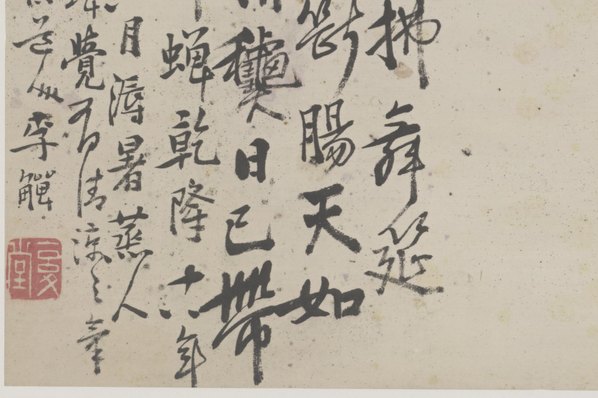 拂舞筵
斷腸天如
龝日已帶
蟬乾隆十六年
月溽暑蒸人
覺有清涼之氣
李鱓